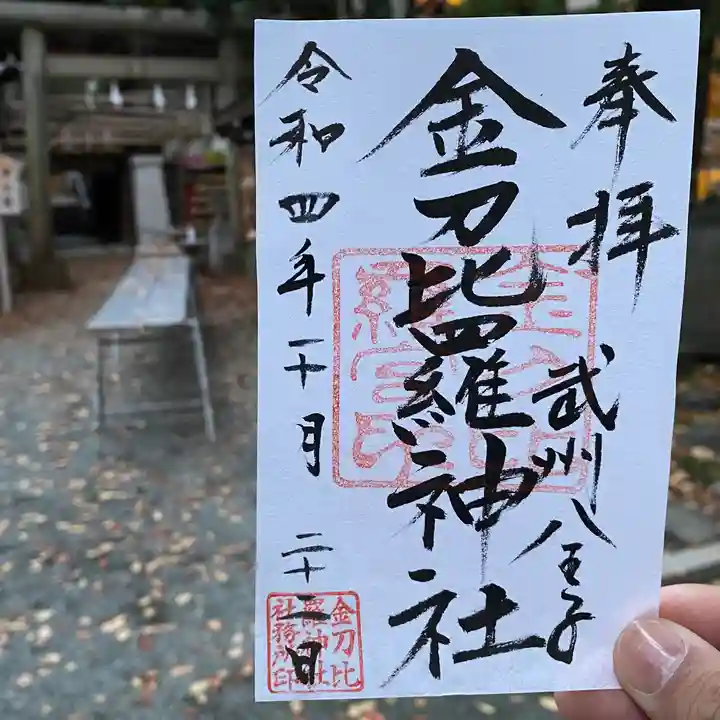 奉拝
武州八王子
金刀比羅神社
令和四年十一月二十三日
金刀比
羅神社
社務所印